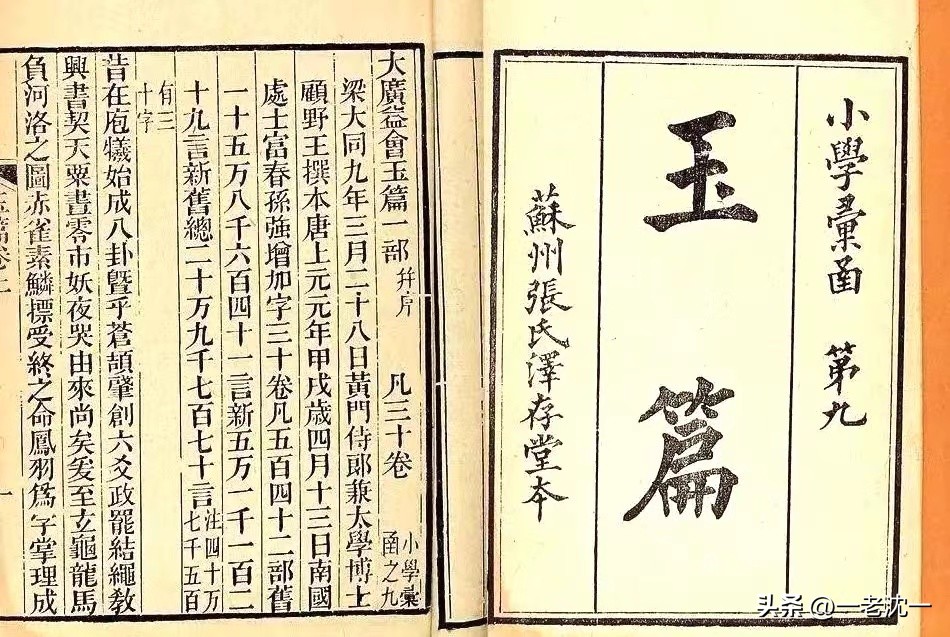 小學彙函 第九
玉篇
蘇州張氏澤存堂本
大廣益會玉篇一部 并序 凡三十卷 小學彙函之九
梁大同九年三月二十八日黃門侍郎兼太學博士
顧野王撰本唐上元元年甲戌歲四月十三日南國
處士富春孫強增加字三十卷凡五百四十二部舊
一十五万八千六百四十一言新五万一千一百二
十九言新舊總二十万九千七百七十言 注四十万七千五百
有三十字
昔在庖犧始成八卦曁乎蒼頡肇創六爻政罷結繩教
興書契天粟晝零市妖夜哭由來尚矣爰至玄龜龍馬
負河洛之圖赤雀素鱗摽受終之命鳳羽爲字掌理成
头条 @一老沈一